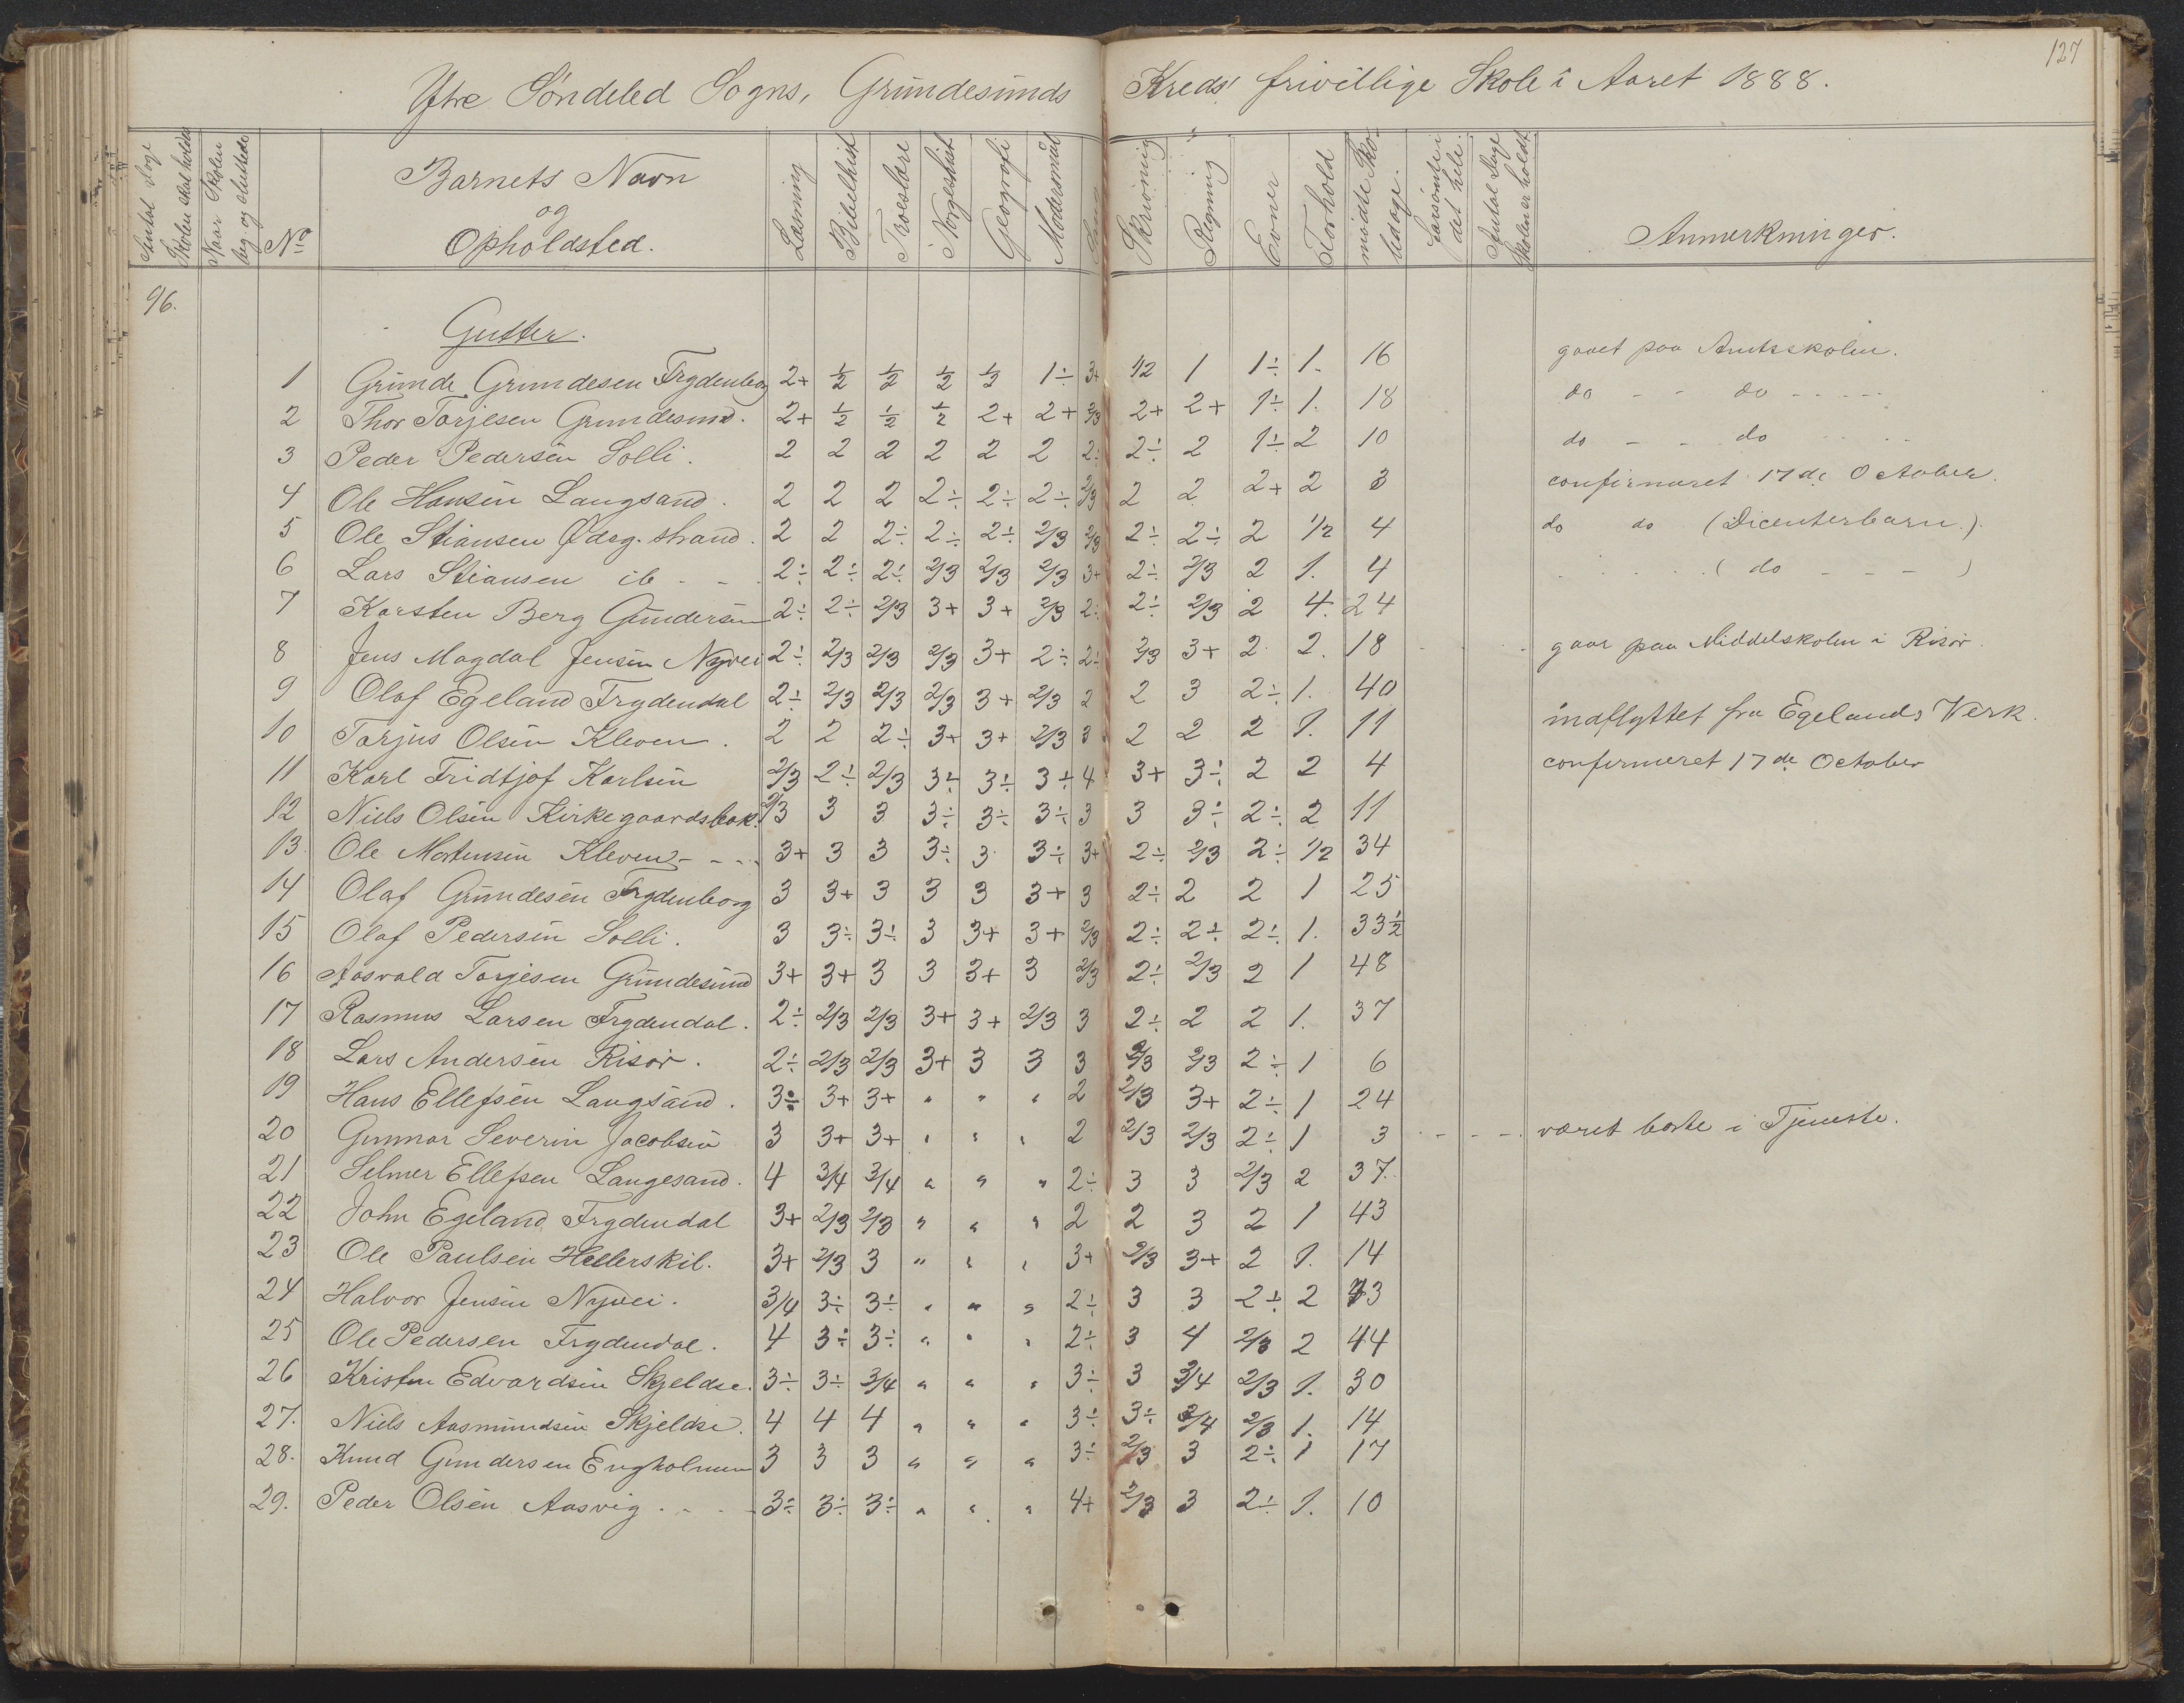 127
Ytre Söndeled Sogns, Grundesunds Kreds' frivillige Skole i Aaret 1888.
Antal Dage Skolen skal holdes
Naar Skolen beg. og sluttede
No
Barnets Navn og Opholdsted.
Læsning
Bibelhist
Troeslære
Norgeshist
Geografi
Modersmaal
Sang
Skrivning
Regning
Evner
Forhold
midte Skoledage.
Forsömte i det hele.
Antal Dage Skolen er holdt
Anmerkninger.
96.
Gutter.
1 Grunde Grundesen Frydenborg 2+ 1/2 1/2 1/2 1/2 1÷ 3+ 1/2 1 1÷ 1. 16 gaaet paa Amtsskolen.
2 Thor Torjesen Grundesund. 2+ 1/2 1/2 1/2 2+ 2+ 2/3 2+ 2+ 1÷ 1. 18 do - - do - - - - -
3 Peder Pedersen Solli. 2 2 2 2 2 2 2÷ 2÷ 2 1÷ 2 10 do - - do - - - -
4 Ole Hansen Langsand. 2 2 2 2÷ 2÷ 2÷ 2/3 2 2 2+ 2 3 confirmeret 17de October.
5 Ole Stiansen Ødeg. strand. 2 2 2÷ 2÷ 2÷ 2/3 2/3 2÷ 2÷ 2 1/2 4 do do (Dicenterbarn.).
6 Lars Stiansen ib - - 2÷ 2÷ 2÷ 2/3 2/3 2/3 3+ 2÷ 2/3 2 1. 4 - - - - - ( do - - - )
7 Karsten Berg Gundersen 2÷ 2÷ 2/3 3+ 3+ 2/3 2÷ 2÷ 2/3 2 4. 24
8 Jens Magdal Jensen Nyvei 2÷ 2/3 2/3 2/3 3+ 2÷ 2÷ 2/3 3+ 2 2. 18 gaar paa Middelskolen i Risör.
9 Olaf Egeland Frydendal 2÷ 2/3 2/3 2/3 3+ 2/3 2 2 3 2÷ 1. 40 indflyttet fra Egelands Verk.
10 Torjus Olsen Kleven. 2 2 2÷ 3+ 3+ 2/3 3 2 2 2 1. 11
11 Karl Fridtjof Karlsen 2/3 2÷ 2/3 3÷ 3÷ 3÷ 4 3+ 3÷ 2 2 4 confirmeret 17de October
12 Niels Olsen Kirkegaardsbak. 2/3 3 3 3÷ 3÷ 3÷ 3 3 3÷ 2÷ 2 11
13. Ole Mortensen Kleven - - - 3+ 3 3 3÷ 3 3÷ 3+ 2÷ 2/3 2÷ 1/2 34
14 Olaf Grundesen Frydenborg 3 3+ 3 3 3 3+ 3 2÷ 2 2 1 25
15 Olaf Pedersen Solli. 3 3÷ 3÷ 3 3+ 3+ 2/3 2÷ 2÷ 2÷ 1. 33 1/2
16 Aasvald Torjesen Grundesund 3+ 3+ 3 3 3+ 3 2/3 2÷ 2/3 2 1 48
17 Rasmus Larsen Frydendal. 2÷ 2/3 2/3 3+ 3+ 2/3 3 2÷ 2 2 1. 37
18 Lars Andersen Risör. 2÷ 2/3 2/3 3+ 3 3 3 2/3 2/3 2÷ 1 6
19 Hans Ellefsen Langsand. 3÷ 3+ 3+ " " " 2 2/3 3+ 2÷ 1 24
20 Gunnar Severin Jacobsen 3 3+ 3+ " " " 2 2/3 2/3 2÷ 1 3 - - - været borte i Tjeneste.
21 Selmer Ellefsen Langesand. 4 3/4 3/4 " " " 2÷ 3 3 2/3 2 37.
22 John Egeland Frydendal 3+ 2/3 2/3 " " " 2 2 3 2 1 43
23 Ole Paulsen Hellerskil. 3+ 2/3 3 " " " 3+ 2/3 3+ 2 1. 14
24 Halvor Jensen Nyvei. 3/4 3÷ 3÷ " " " 2÷ 3 3 2÷ 2 33
25 Ole Pedersen Frydendal. 4 3÷ 3÷ " " " 2÷ 3 4 2/3 2 44
26 Kristen Edvardsen Skjeldsø. 3÷ 3÷ 3/4 " " " 3÷ 3 3/4 2/3 1. 30
27. Niels Aasmundsen Skjeldsø. 4 4 4 " " " 3÷ 3÷ 3/4 2/3 1. 14
28. Knud Gundersen Engholmen 3 3 3 " " " 3÷ 2/3 3 2÷ 1 17
29. Peder Olsen Aasvig. - - - 3÷ 3÷ 3÷ " " " 4+ 2/3 3 2÷ 1. 10